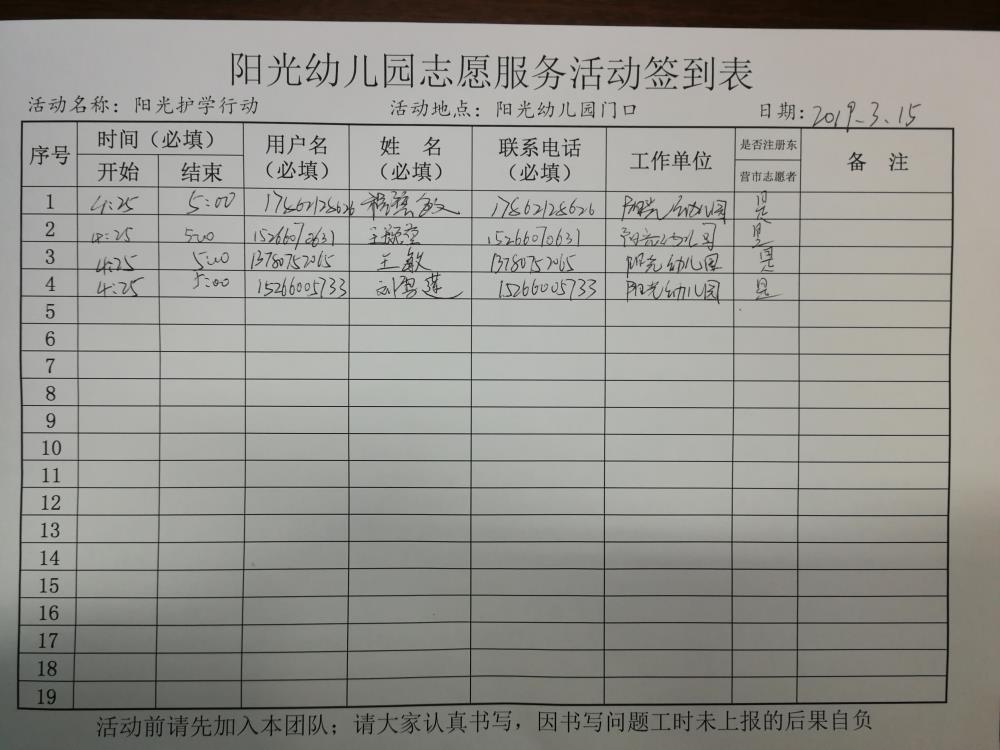 阳光幼儿园志愿服务活动签到表
活动名称：阳光护学行动 活动地点：阳光幼儿园门口 日期：2019.3.15
序号 时间（必填） 用户名（必填） 姓名（必填） 联系电话（必填） 工作单位 是否注册东营市志愿者 备注
开始 结束
1 4:25 5:00 17862128626 17862128626 阳光幼儿园 是
2 4:25 5:00 15266070631 15266070631 阳光幼儿园 是
3 4:25 5:00 13780752065 王敏 13780752065 阳光幼儿园 是
4 4:25 5:00 15266005733 刘雪莲 15266005733 阳光幼儿园 是
5
6
7
8
9
10
11
12
13
14
15
16
17
18
19
活动前请先加入本团队；请大家认真书写，因书写问题工时未上报的后果自负